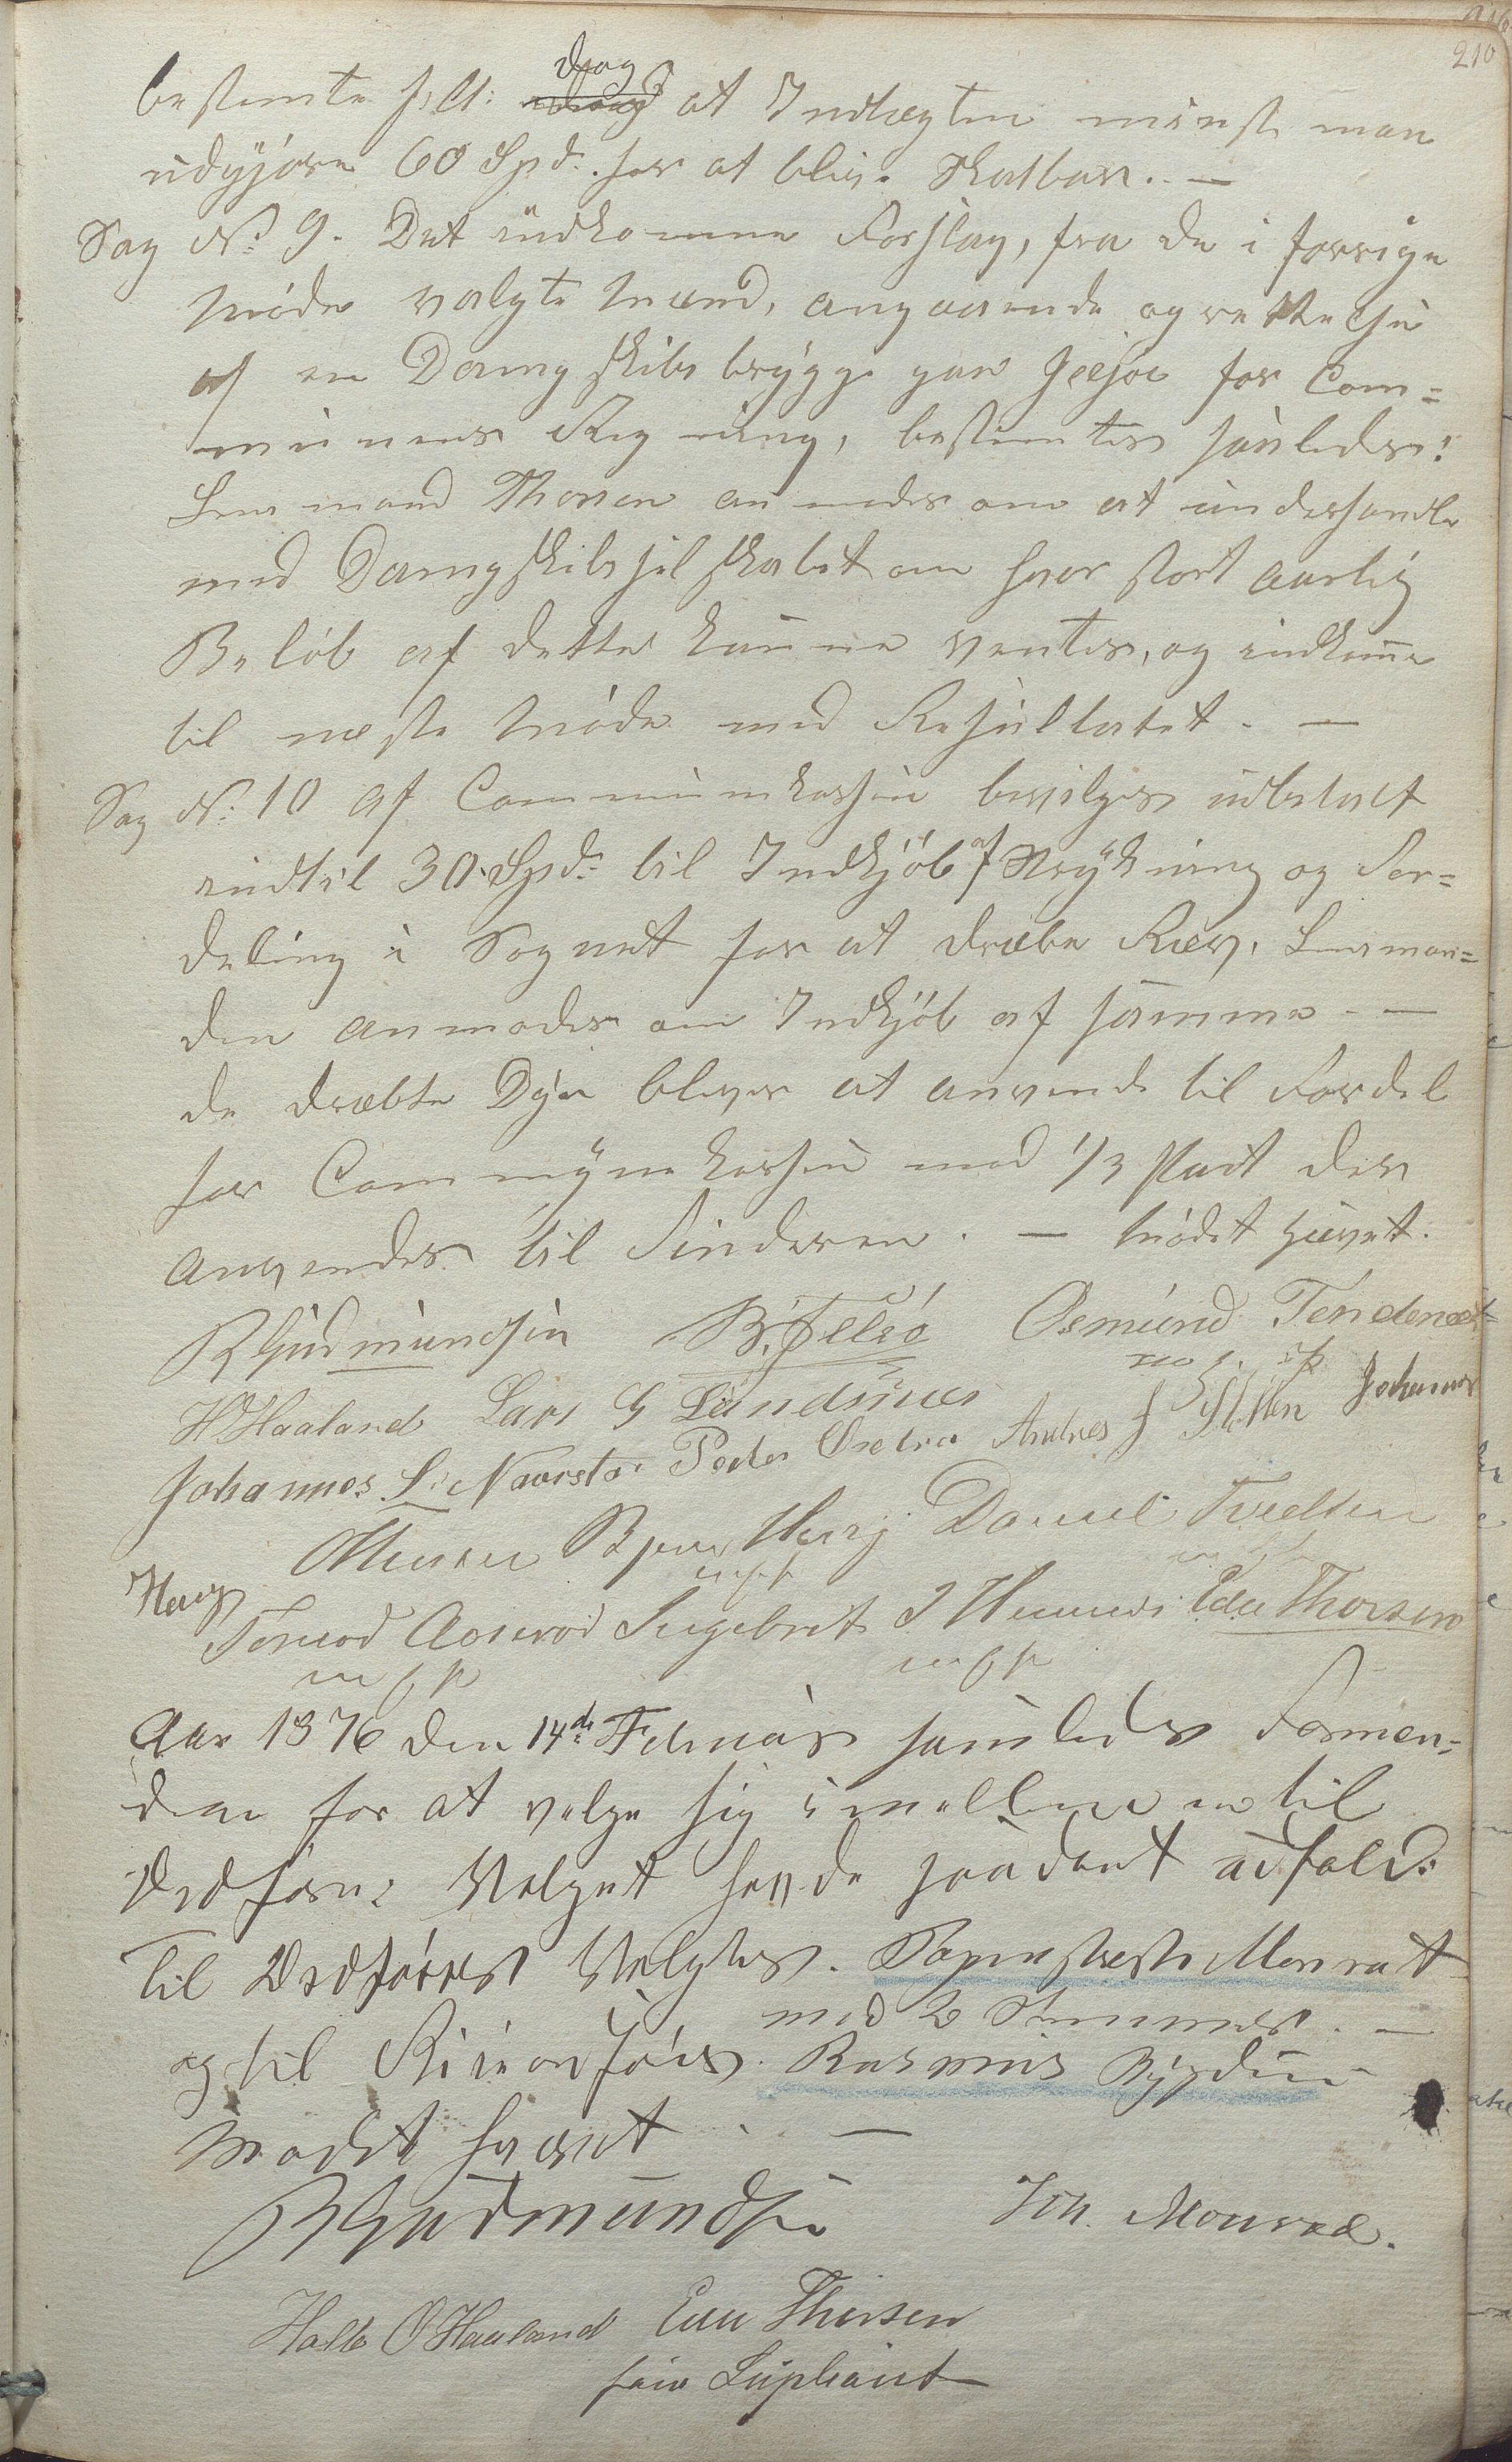 210
bestemte felt: dog at Indtægten minst maa
udgjøre 60 Spd. for at blive Skatbar. —
Sag No 9. Det indkomne Forslag, fra de i forrige
Møde valgte Mænd, angaaende oprettelse
af en Dampskibsbrygge paa Jelsøe for Com=
munens Regning, bestemtes saaledes:
Lensmand Thorsen anmodes om at underhandle
med Dampskibsselskabet om hvor stort aarlig
Beløb af dette kunne ventes, og indkomme
til næste Møde med Resultatet. —
Sag No 10 af Communekassen bevilges udbetalt
indtil 30 Spd. til Indkjøb af Strykning og For=
deling i Sognet for at dræbe Ræv. Lensman=
den anmodes om Indkjøb af samme. —
de dræbte Dyr bliver at anvende til Fordel
for Communekassen med 1/3 Part der
anvendes til Finderen. — Mødet hævet.
R Gudmundsen B. Jelsø Osmund Tendenæs
m. f. p.
H Haaland Lars G Landsnes
Johannes L. Naavstøe Peder Osebro Andres J Sletten Johannes
Haug Bjerne Berg Daniel Tvedten
m f p
Tormod Aaserød Ingebret J Hiimnes Edu Thorsen
m f p m f p
Aar 1876 den 14de Februar samledes Formæn=
dene for at velge sig imellem en til
Ordfører. Valget havde saadant udfald:
Til Ordfører Valgtes. Sognepræst Monrat
med 2 Stemmer. —
og til Viceordfører. Rasmus Bygden
Mødet hævet. —
R Gudmundsen Joh. Monrad.
Halle O Haaland Edu Thorsen
som Supleant